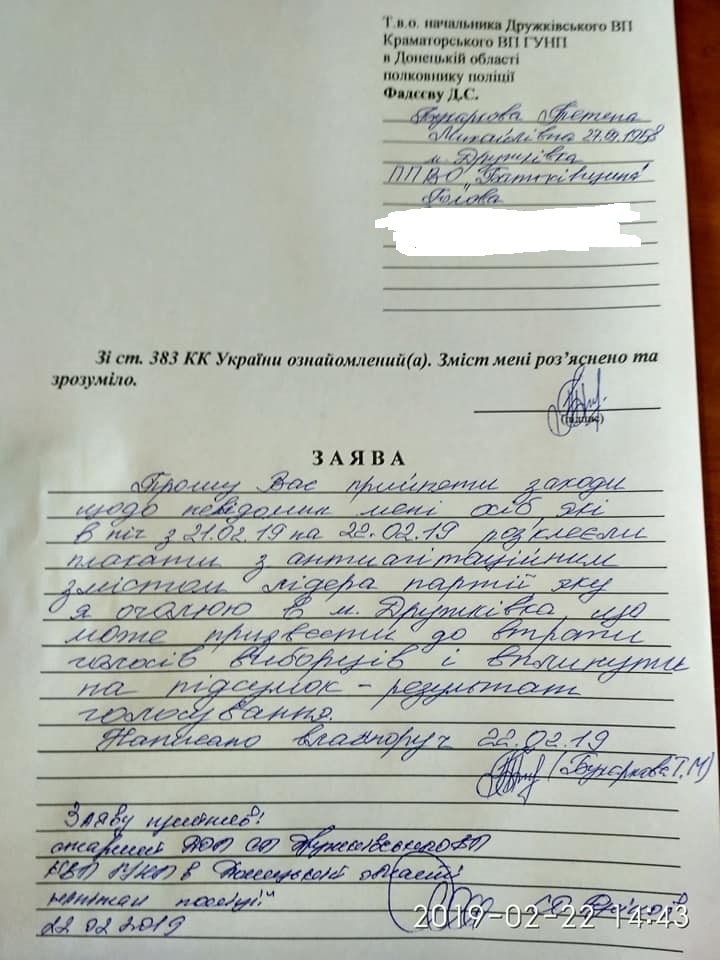 Т.в.о. начальника Дружківського ВП
Краматорського ВП ГУНП
в Донецькій області
полковнику поліції
Фадєєву Д.С.
Бучаркова Тетена
Михайлівна 1958
м. Дружківка
ППВО "Батьківщина"
Голова
Зі ст. 383 КК України ознайомлений(а). Зміст мені роз'яснено та
зрозуміло.
(підпис)
ЗАЯВА
Прошу Вас прийняти заходи
щодо невідомих мені осіб, які
в ніч з 21.02.19 на 22.02.19 розклеєли
плакати з антиагітаційним
змістом лідера партій, яку
я очолюю в м. Дружківка, що
може призвести до втрати
голосів виборців і вплинути
на підсумок - результат
голосування.
Написано власноруч 22.02.19
(Бучаркова Т.М)
Заяву прийняв:
старший ДОП СП Дружківського ВП
КВП ГУНП в Донецькій області
капітан поліції
22 02 2019
2019-02-22 14:43